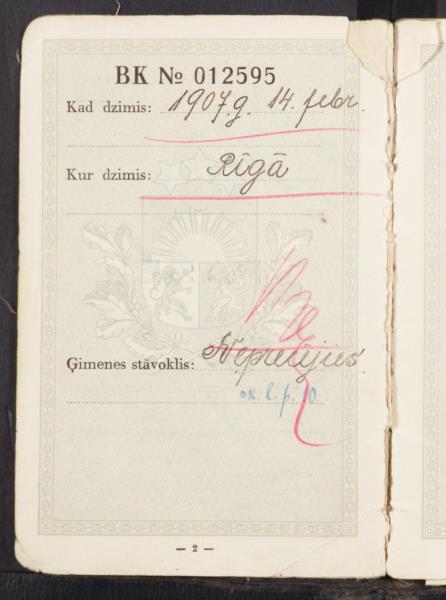 BK № 012595
Kad dzimis: 1907.g. 14. febr.
Kur dzimis: Rīgā
Ģimenes stāvoklis: Neprecējies.
sk. l. p. 10.
— 2 —